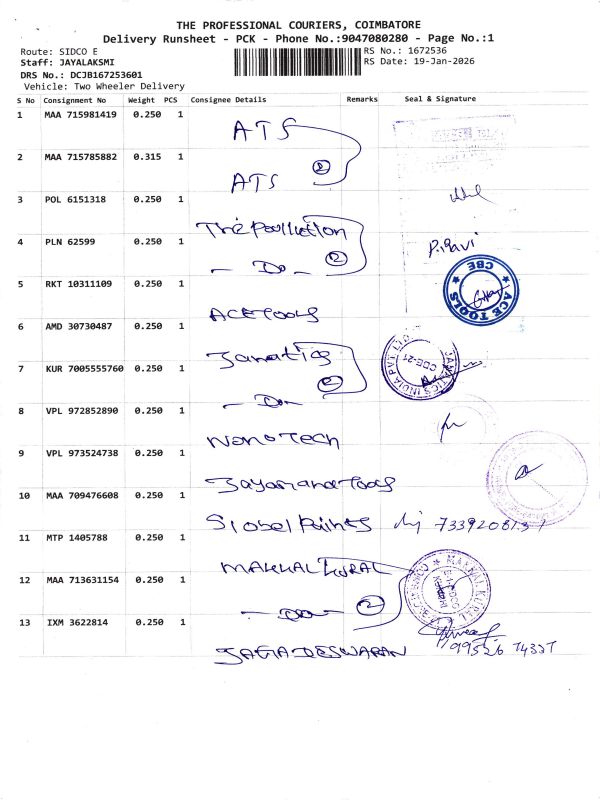 THE PROFESSIONAL COURIERS, COIMBATORE
Delivery Runsheet - PCK - Phone No.:9047080280 - Page No.:1
Route: SIDCO E
RS No.: 1672536
Staff: JAYALAKSMI
RS Date: 19-Jan-2026
DRS No.: DCJB167253601
Vehicle: Two Wheeler Delivery
S No Consignment No Weight PCS Consignee Details Remarks Seal & Signature
1 MAA 715981419 0.250 1 ATS
2 MAA 715785882 0.315 1 ATS 2
3 POL 6151318 0.250 1 The Pollution
4 PLN 62599 0.250 1 - Do - 2 P. Ravi
5 RKT 10311109 0.250 1 ACE Tools ACE TOOLS CBE
6 AMD 30730487 0.250 1 Janatics
7 KUR 7005555760 0.250 1 - Do - 2 JANATICS INDIA PVT LTD CBE-21
8 VPL 972852890 0.250 1 Nano Tech
9 VPL 973524738 0.250 1 Tools
10 MAA 709476608 0.250 1 Global Paints
11 MTP 1405788 0.250 1 MAKKAL KURAL
12 MAA 713631154 0.250 1 - Do - 2 MAKKAL KURAL
13 IXM 3622814 0.250 1 JAGADESWARAN 99526 74337